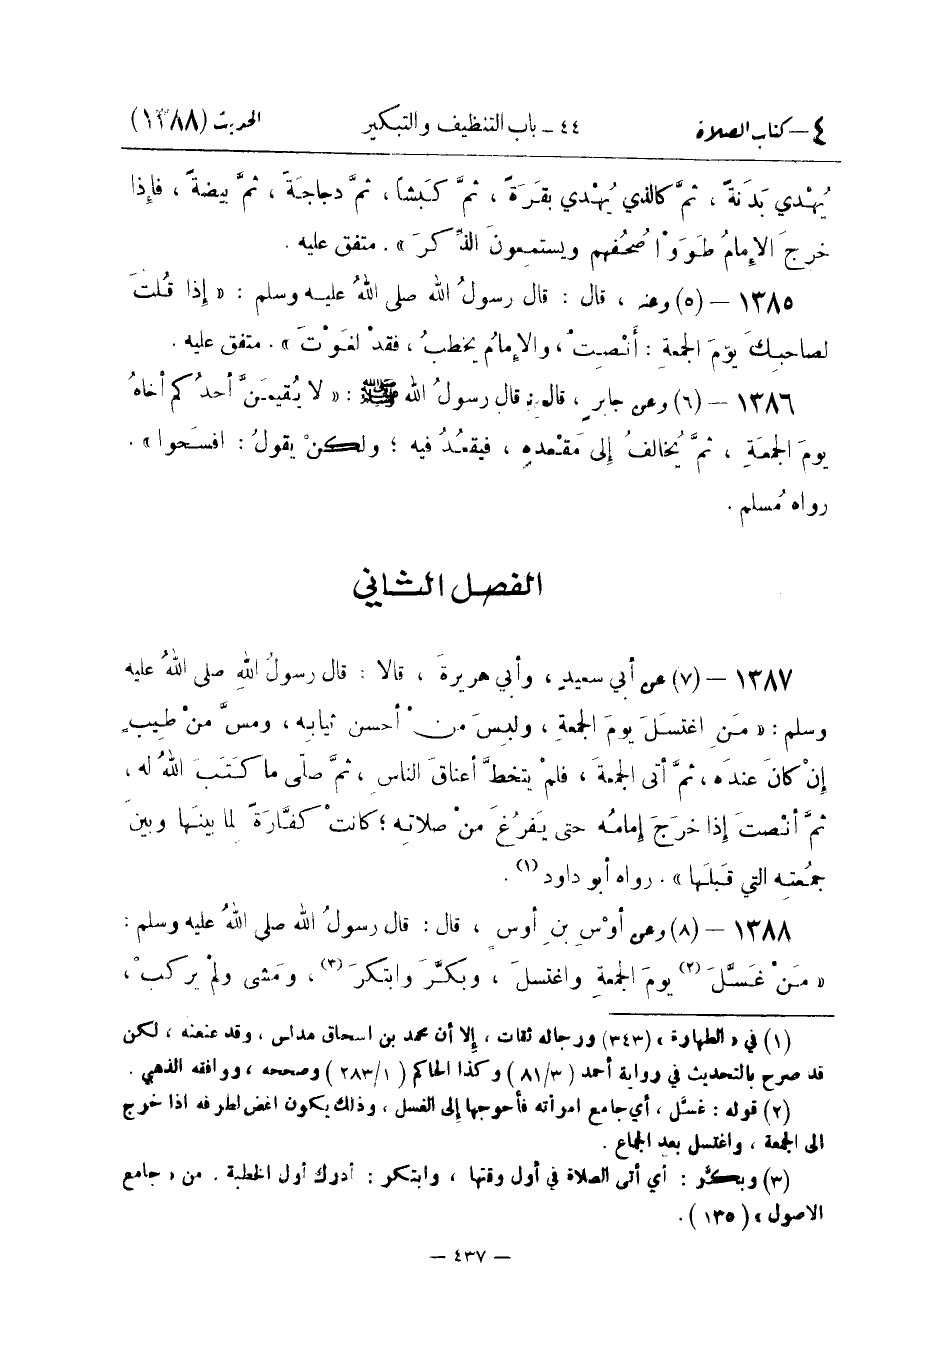 ٤ – كتاب الصلاة ٤٤ – باب التنظيف والتبكير الحديث (١٣٨٨)
يُهْدي بَدَنةً ، ثمَّ كالذي يُهْدي بقَرَةً ، ثمَّ كَبشاً ، ثمَّ دجاجةً ، ثمَّ بيضةً ، فإِذا
خرجَ الإِمامُ طوَوْا صُحُفهم ويستمعونَ الذِّكرَ » . متفق عليه .
١٣٨٥ – (٥) وعنه ، قال : قال رسولُ الله صلى اللهُ عليه وسلم : « إِذا قُلتَ
لصاحبكَ يوْمَ الجمعة : أَنْصِتْ ، والإِمامُ يخطبُ ، فقدْ لغَوْتَ » . متفق عليه .
١٣٨٦ – (٦) وعن جابرٍ ، قال : قال رسولُ الله ﷺ : « لا يُقيمَنَّ أحدُكم أخاهُ
يومَ الجمعَةِ ، ثمَّ يُخالفُ إِلى مَقْعدهِ ، فيقعُدُ فيه ؛ ولكنْ يقولُ : افسَحوا » .
رواه مُسلم .
الفصل الثاني
١٣٨٧ – (٧) عن أبي سعيدٍ ، وأبي هريرةَ ، قالا : قال رسولُ اللهِ صلى اللهُ عليه
وسلم : « مَنِ اغتسَلَ يومَ الجمعةِ ، ولبِسَ منْ أحسن ثيابه ، ومسَّ منْ طيبٍ
إِنْ كانَ عندَه ، ثمَّ أتى الجمعةَ ، فلمْ يتخطَّ أعناقَ الناس ، ثمَّ صلّى ما كتَبَ اللهُ له ،
ثمَّ أنْصتَ إِذا خرَجَ إِمامُه حتى يَفرُغَ منْ صلاته ؛ كانتْ كفَّارَةً لما بينَها وبينَ
جمُعته التي قَبلَها » . رواه أبو داود (١) .
١٣٨٨ – (٨) وعن أوْسِ بن أوسٍ ، قال : قال رسولُ الله صلى اللهُ عليه وسلم :
« مَنْ غَسَّلَ (٢) يومَ الجمعةِ واغتسلَ ، وبكَّرَ وابتكرَ (٣) ، ومَشى ولمْ يركبْ ،
(١) في « الطهارة » (٣٤٣) ورجاله ثقات ، إلا أن محمد بن اسحاق مدلس ، وقد عنعنه ، لكن
قد صرح بالتحديث في رواية أحمد (٨١/٣) وكذا الحاكم (٢٨٣/١) وصححه ، ووافقه الذهبي .
(٢) قوله : غسَّل ، أي جامع امرأته فأحوجها إلى الغسل ، وذلك يكون اغض لطرفه اذا خرج
الى الجمعة ، واغتسل بعد الجماع .
(٣) وبكَّر : أي أتى الصلاة في أول وقتها ، وابتكر : أدرك أول الخطبة . من « جامع
الاصول » (١٣٥) .
– ٤٣٧ –